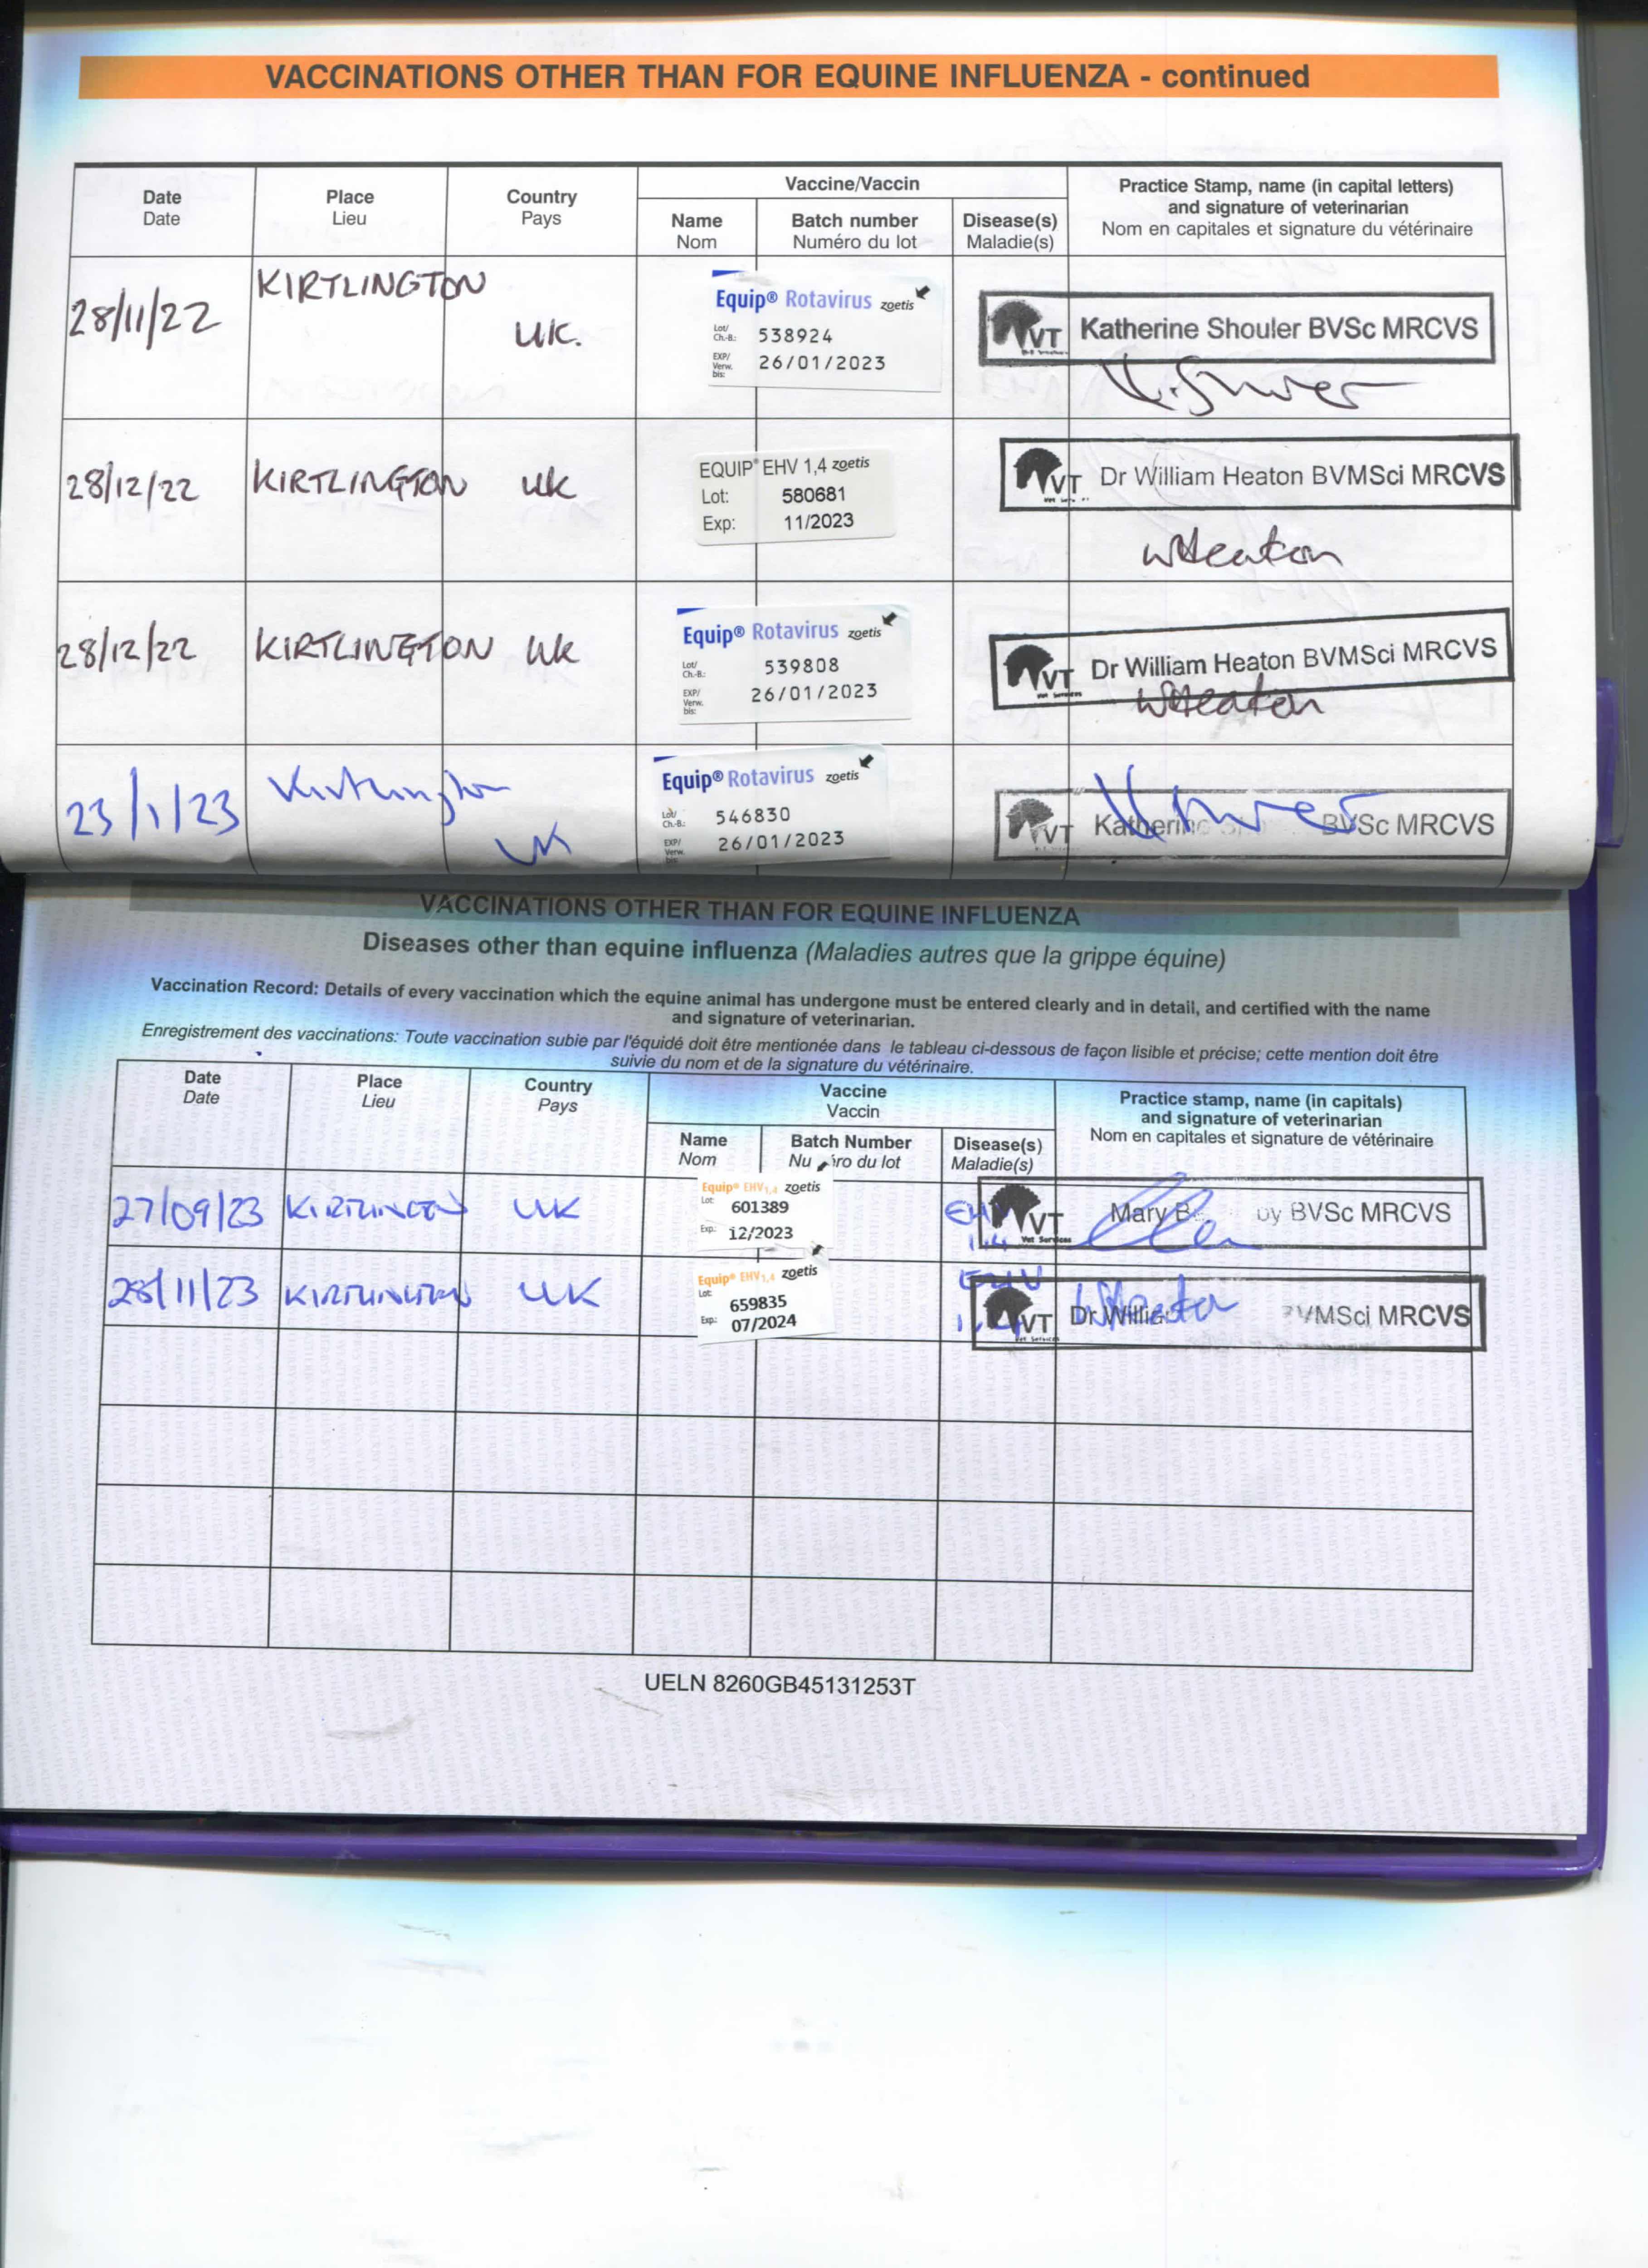 VACCINATIONS OTHER THAN FOR EQUINE INFLUENZA - continued
Date
Date
Place
Lieu
Country
Pays
Vaccine/Vaccin
Name
Nom
Batch number
Numéro du lot
Disease(s)
Maladie(s)
Practice Stamp, name (in capital letters)
and signature of veterinarian
Nom en capitales et signature du vétérinaire
28/11/22 KIRTLINGTON UK.
Equip® Rotavirus zoetis
Lot/ Ch.-B.: 538924
EXP/ Verw. bis: 26/01/2023
VT Katherine Shouler BVSc MRCVS
28/12/22 KIRTLINGTON UK
EQUIP® EHV 1,4 zoetis
Lot: 580681
Exp: 11/2023
VT Dr William Heaton BVMSci MRCVS
WHeaton
28/12/22 KIRTLINGTON UK
Equip® Rotavirus zoetis
Lot/ Ch.-B.: 539808
EXP/ Verw. bis: 26/01/2023
VT Dr William Heaton BVMSci MRCVS
Vet Services
WHeaton
23/1/23 Kirtlington UK
Equip® Rotavirus zoetis
Lot/ Ch.-B.: 546830
EXP/ Verw. bis: 26/01/2023
VT Katherine BVSc MRCVS
VACCINATIONS OTHER THAN FOR EQUINE INFLUENZA
Diseases other than equine influenza (Maladies autres que la grippe équine)
Vaccination Record: Details of every vaccination which the equine animal has undergone must be entered clearly and in detail, and certified with the name
and signature of veterinarian.
Enregistrement des vaccinations: Toute vaccination subie par l'équidé doit être mentionée dans le tableau ci-dessous de façon lisible et précise; cette mention doit être
suivie du nom et de la signature du vétérinaire.
Date
Date
Place
Lieu
Country
Pays
Vaccine
Vaccin
Name
Nom
Batch Number
Nu ro du lot
Disease(s)
Maladie(s)
Practice stamp, name (in capitals)
and signature of veterinarian
Nom en capitales et signature de vétérinaire
27/09/23 KIRTLINGTON UK
Equip® EHV1,4 zoetis
Lot: 601389
Exp.: 12/2023
EHV 1,4
VT Mary BVSc MRCVS
Vet Services
28/11/23 KIRTLINGTON UK
Equip® EHV1,4 zoetis
Lot: 659835
Exp.: 07/2024
EHV 1,4
VT Dr Willia VMSci MRCVS
Vet Services
WHeaton
UELN 8260GB45131253T